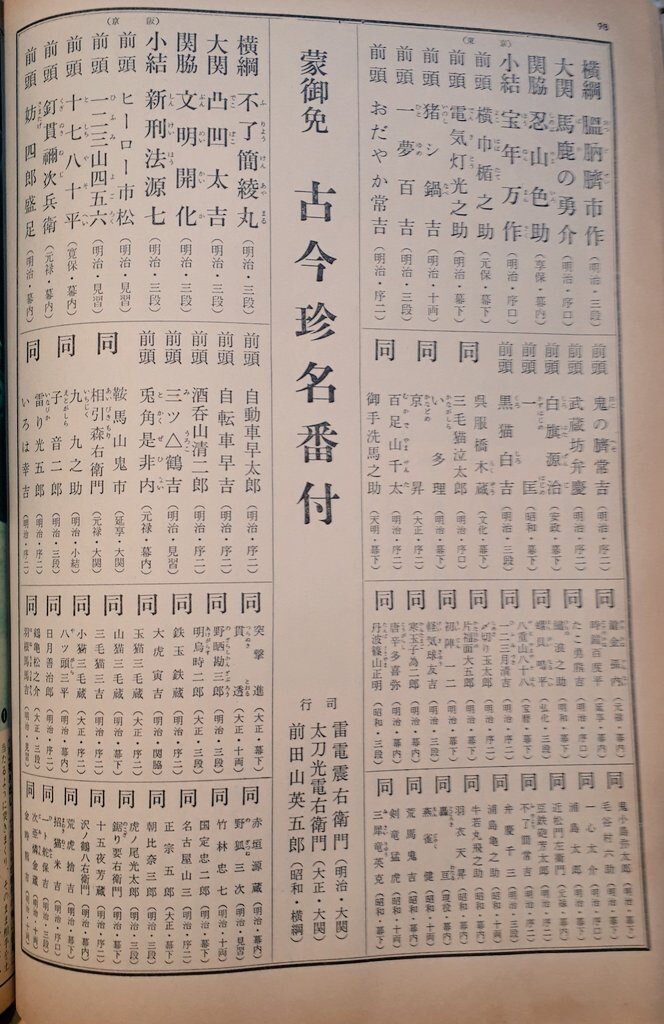 98
（東京）
横綱 膃肭臍市作（明治・三段）
大関 馬鹿の勇介（明治・序口）
関脇 忍山色助（享保・幕内）
小結 宝年万作（明治・序口）
前頭 横巾楯之助（元保・幕下）
前頭 電気灯光之助（明治・幕下）
前頭 猪シ鍋吉（明治・十両）
前頭 一夢百吉（明治・幕下）
前頭 おだやか常吉（明治・序二）
前頭 鬼の臍常吉（明治・序二）
前頭 武蔵坊弁慶（明治・序二）
前頭 白旗源治（安政・幕下）
前頭 一 匡（昭和・幕下）
前頭 黒猫白吉（明治・三段）
同 呉服橋木蔵（文化・幕下）
三毛猫泣太郎（明治・序口）
い 多理（明治・序二）
同 京 昇（大正・序二）
百足山千太（明治・序二）
御手洗馬之助（天明・幕下）
同 時鐘百度平（延享・幕内）
同 たこ勇熊吉（明治・序二）
同 浪之助（明治・幕下）
同 螺貝鳴平（弘化・三段）
同 八重山八十八（宝暦・幕下）
同 一二三月清吉（明治・序二）
同 〆切り玉太郎（明治・序二）
同 片福面大五郎（明治・幕下）
同 初陣一二（明治・幕下）
同 軽気球友吉（明治・序二）
同 寒玉子為二郎（明治・三段）
同 唐辛多喜弥（明治・幕内）
同 丹波篠山正明（昭和・三段）
同 鬼小島弥太郎（明治・三段）
同 毛谷村六助（明治・幕下）
同 一心太介（明治・幕下）
同 浦島太郎（明治・幕下）
同 近松門左衛門（文禄・幕内）
同 豆鉄砲芳太郎（明治・序二）
同 不了簡常吉（明治・序二）
同 弁慶千三（明治・三段）
同 浦島亀之助（明治・幕下）
同 牛若丸飛之助（昭和・幕内）
同 羽衣天昇（昭和・幕内）
同 轟 亘（現役・幕内）
同 燕雀健（昭和・十両）
同 荒馬鬼吉（昭和・幕内）
同 剣竜猛虎（昭和・十両）
同 三犀竜英克（昭和・幕下）
蒙御免 古今珍名番付
行司
雷電震右衛門（明治・大関）
太刀光電右衛門（大正・大関）
前田山英五郎（昭和・横綱）
（京阪）
横綱 不了簡綾丸（明治・三段）
大関 凸凹太吉（明治・序二）
関脇 文明開化（明治・三段）
小結 新刑法源七（明治・三段）
前頭 ヒーロー市松（明治・見習）
前頭 一二三山四五六（明治・見習）
前頭 十七八十平（寛保・幕内）
前頭 釘貫禰次兵衛（元禄・幕内）
前頭 妨四郎盛足（明治・幕内）
前頭 自動車早太郎（明治・序二）
前頭 自転車早吉（明治・序二）
前頭 酒呑山清二郎（明治・序二）
前頭 三ツ△鶴吉（明治・見習）
前頭 兎角是非内（元禄・幕内）
同 鞍馬山鬼市（延享・大関）
相引森右衛門（元禄・大関）
同 九九之助（明治・小結）
子 音二郎（明治・三段）
同 雷り光五郎（明治・序二）
いろは幸吉（明治・序二）
同 突撃進（大正・幕下）
同 貫 透（大正・十両）
同 野晒勘三郎（大正・三段）
同 明烏時二郎（大正・三段）
同 鉄玉鉄蔵（明治・序二）
同 大虎寅吉（明治・関脇）
同 玉猫三毛蔵（大正・序二）
同 山猫三毛蔵（明治・幕下）
同 三毛猫三吉（明治・序二）
同 小猫三毛蔵（大正・序二）
同 八ツ頭三平（明治・幕内）
同 日月善治郎（明治・序二）
同 鶴亀松之介（大正・三段）
同 羽根郎馬吉（明治・見習）
同 赤垣源蔵（明治・幕内）
同 野狐三次（明治・幕内）
同 竹林忠七（明治・序二）
同 国定忠二郎（明治・幕下）
同 名古屋山三（明治・序二）
同 正宗五郎（大正・幕下）
同 朝比奈三郎（明治・三段）
同 虎ノ尾光太郎（明治・三段）
同 鋸り要右衛門（明治・幕下）
同 十五夜芳蔵（明治・幕下）
同 沢ノ鶴八右衛門（明治・十両）
同 荒虎捨吉（明治・幕内）
同 招猫米吉（明治・序口）